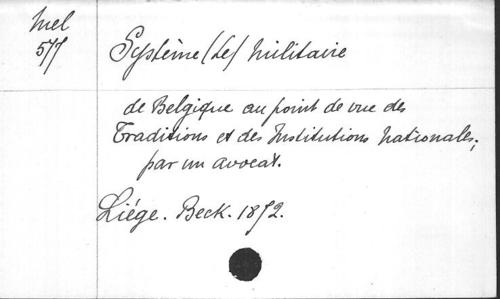 Mel
577
Système (Le) militaire
de Belgique au point de vue des
Traditions et des Institutions nationales;
par un avocat.
Liége. Beck. 1872.